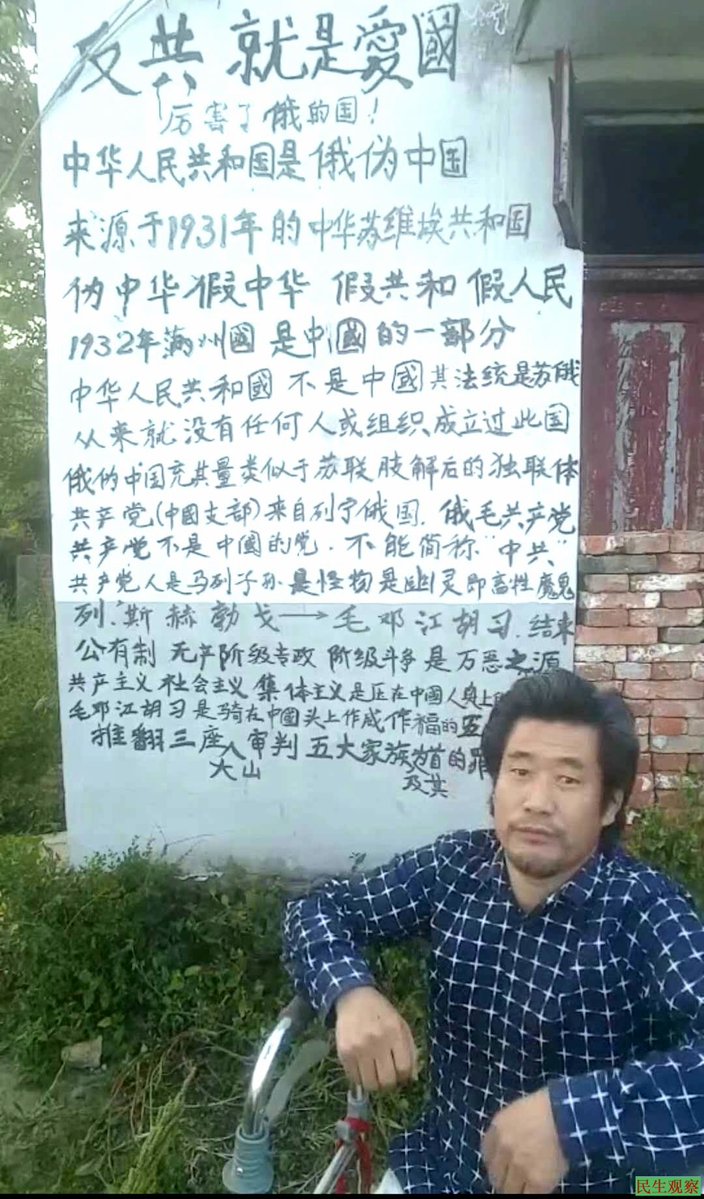 反共就是愛國
厉害了俄的国！
中华人民共和国是俄伪中国
来源于1931年的中华苏维埃共和国
伪中华假中华 假共和假人民
1932年满州國是中國的一部分
中华人民共和國不是中國其法统是苏俄
从来就没有任何人或组织成立过此国
俄伪中国充其量类似于苏联肢解后的独联体
共产党(中國支部)来自列宁俄国.俄毛共产党
共产党不是中國的党.不能简称"中共"
共产党人是马列子孙是怪物是幽灵即畜牲魔鬼
列.斯赫勃戈→毛邓江胡习.结束
公有制 无产阶级专政 阶级斗争是万恶之源
共产主义社会主义集体主义是压在中國人身上
毛邓江胡习是骑在中國头上作威作福的五
推翻三座大山审判五大家族为首的罪
及其
民生观察